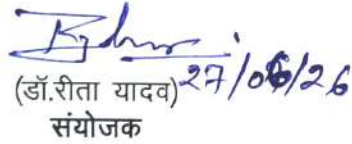 (डॉ.रीता यादव) 27/06/26
संयोजक